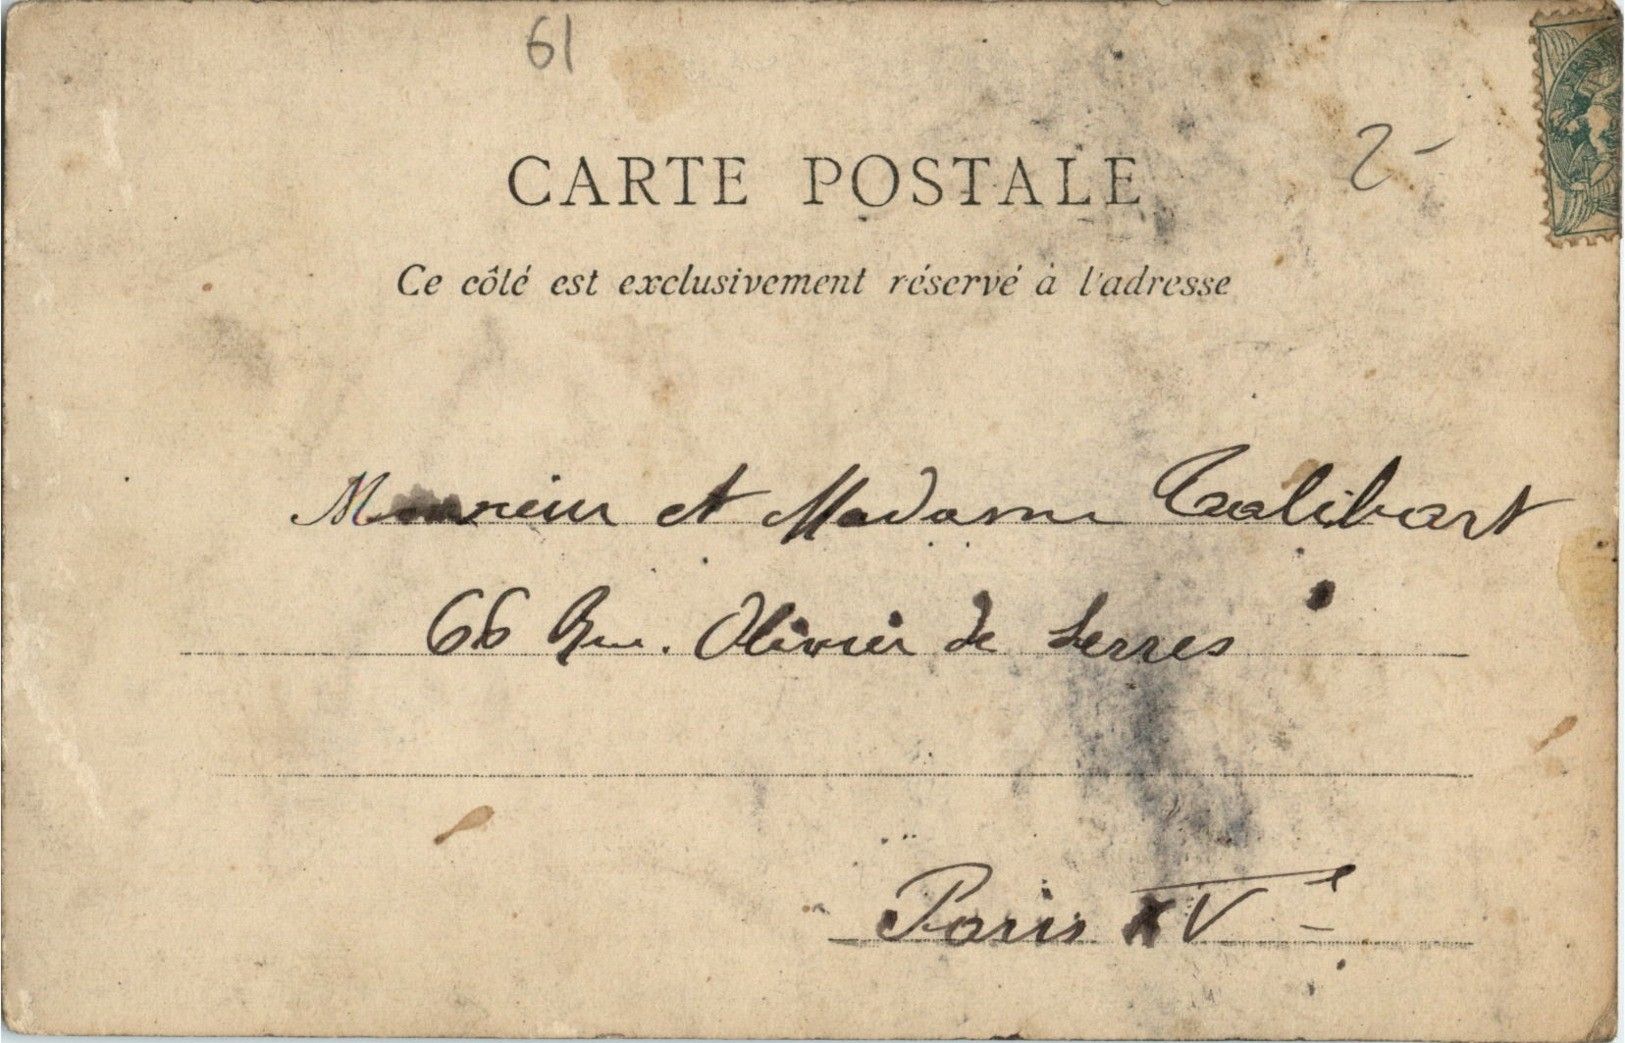 61
2-
CARTE POSTALE
Ce côté est exclusivement réservé à l'adresse
Monsieur et Madame Talibart
66 Rue. Olivier de Serres
Paris XVe